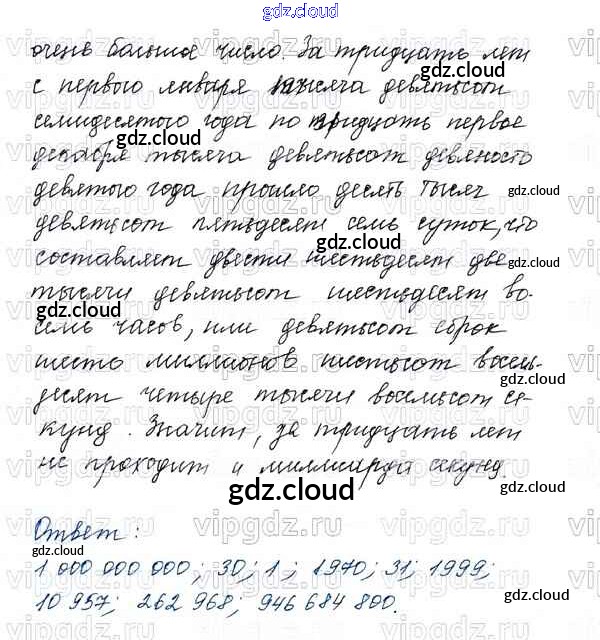 gdz.cloud
очень большое число. За тридцать лет
с первого января тысяча девятьсот
семидесятого года по тридцать первое
декабря тысяча девятьсот девяносто
девятого года прошло десять тысяч
девятьсот пятьдесят семь суток, что
составляет двести шестьдесят две
тысячи девятьсот шестьдесят во-
семь часов, или девятьсот сорок
шесть миллионов шестьсот восемь-
десят четыре тысячи восемьсот се-
кунд. Значит, за тридцать лет
не проходит и миллиарда секунд.
gdz.cloud
Ответ:
1 000 000 000; 30; 1; 1970; 31; 1999;
10 957; 262 968; 946 684 800.
vipgdz.ru